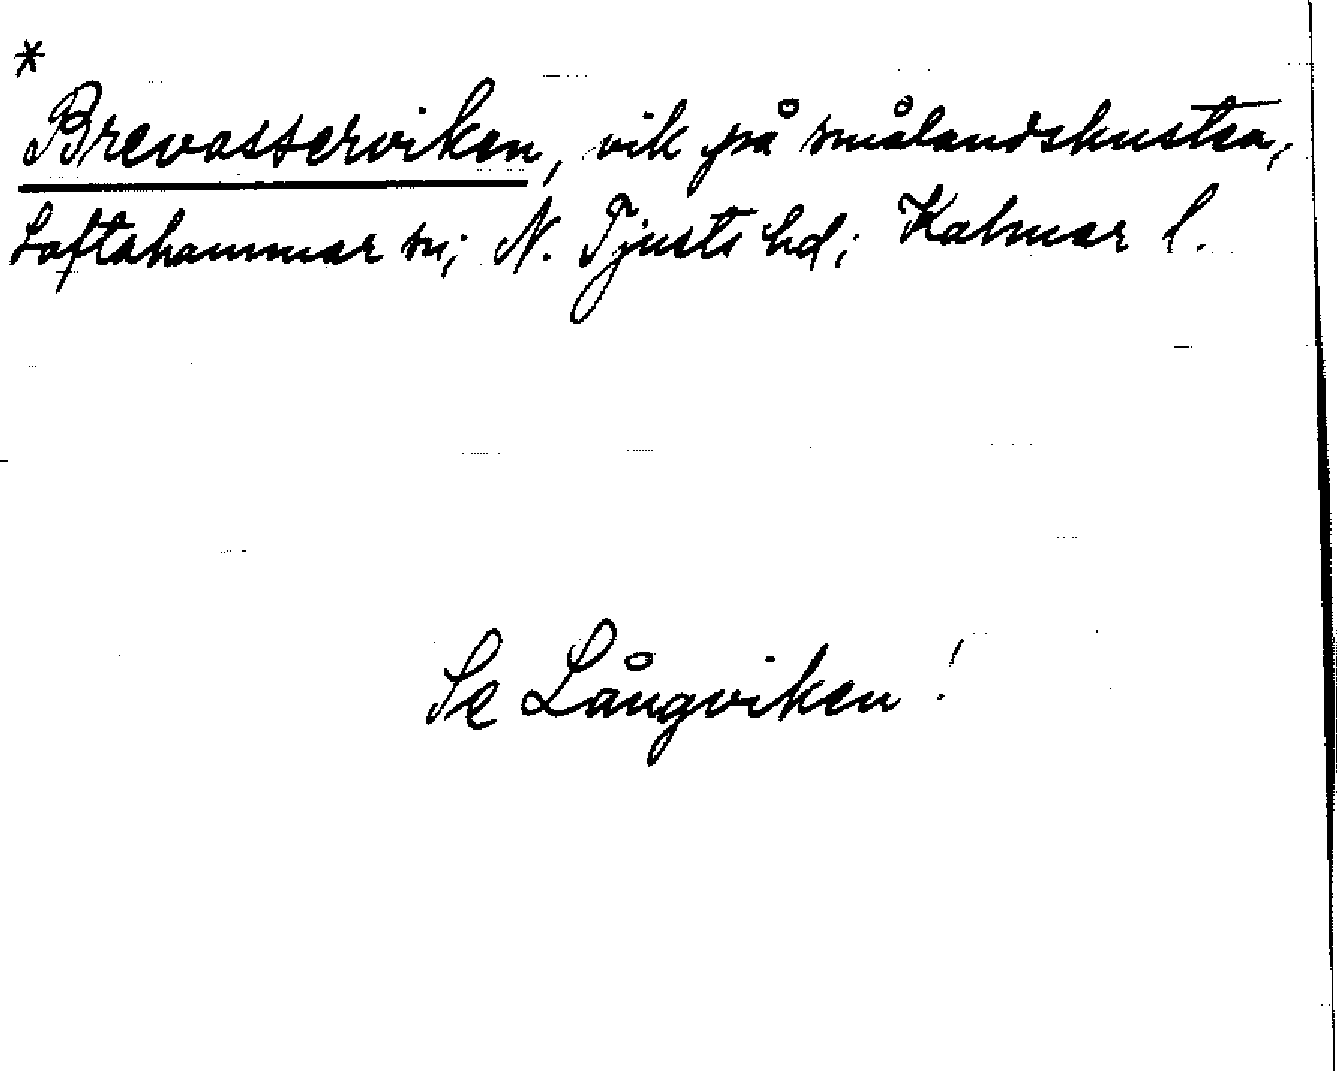 *
Brevassterviken, vik på smålandskusten,
Loftahammar sn; N. Tjusts hd; Kalmar l.
Se Långviken!